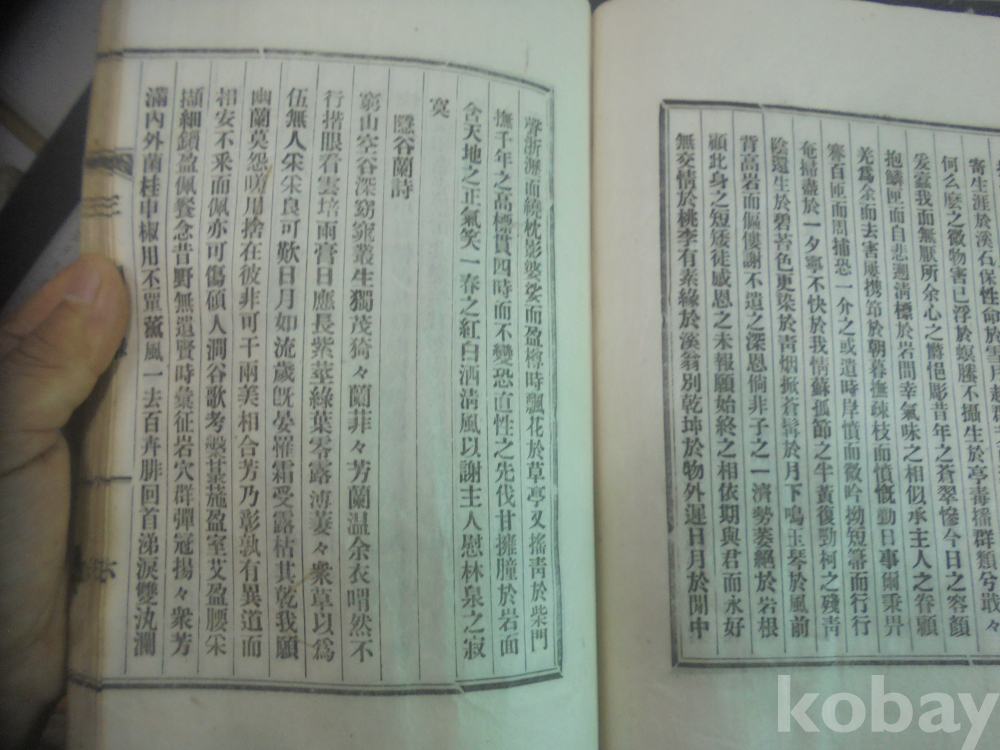 寄生涯於溪石保性命於雪月
何么麽之微物害已浮於螟螣不攝生於亭毒播群類兮戕々
爰蠡我而無厭所余心之爵悒彫昔年之蒼翠慘今日之容顔
抱鱗匝而自悲溯淸標於岩間幸氣味之相似承主人之眷顧
羌爲余而去害屢携笻於朝暮撫疎枝而憤慨勤日事爾秉畀
寮百匝而周捕恐一介之或遺時岸憤而微吟拗短籌而行行
奄掃盡於一夕寧不快於我情蘇孤節之半黃復勁柯之殘靑
陰還生於碧苔色更染於靑烟掀蒼髥於月下鳴玉琴於風前
背高岩而傴僂謝不遺之深恩倘非子之一濟勢萎絕於岩根
顧北身之短矮徒感恩之未報願始終之相依期與君而永好
無交情於桃李有素緣於溪翁別乾坤於物外遲日月於閒中
聲淅瀝而繞枕影婆娑而盈樽時飄花於草亭又搖靑於柴門
撫千年之高標貫四時而不變恐直性之先伐甘擁腫於岩面
含天地之正氣笑一春之紅白洒淸風以謝主人慰林泉之寂
寞
隱谷蘭詩
窮山空谷深窈窕叢生獨茂猗々蘭菲々芳蘭温余衣喟然不
行揩眼看雲培雨膏日應長紫莖綠葉零露溥萋々衆草以爲
伍無人采采良可歎日月如流歲旣晏罹霜受露枯其乾我願
幽蘭莫怨嗟用捨在彼非可干兩美相合芳乃彰孰有異道而
相安不采而佩亦可傷碩人澗谷歌考槃菉葹盈室艾盈腰采
擷細鎖盈佩餐念昔野無遺賢時彙征岩穴群彈冠揚々衆芳
滿內外菌桂申椒用不單薰風一去百卉腓回首涕淚雙汍瀾
kobay